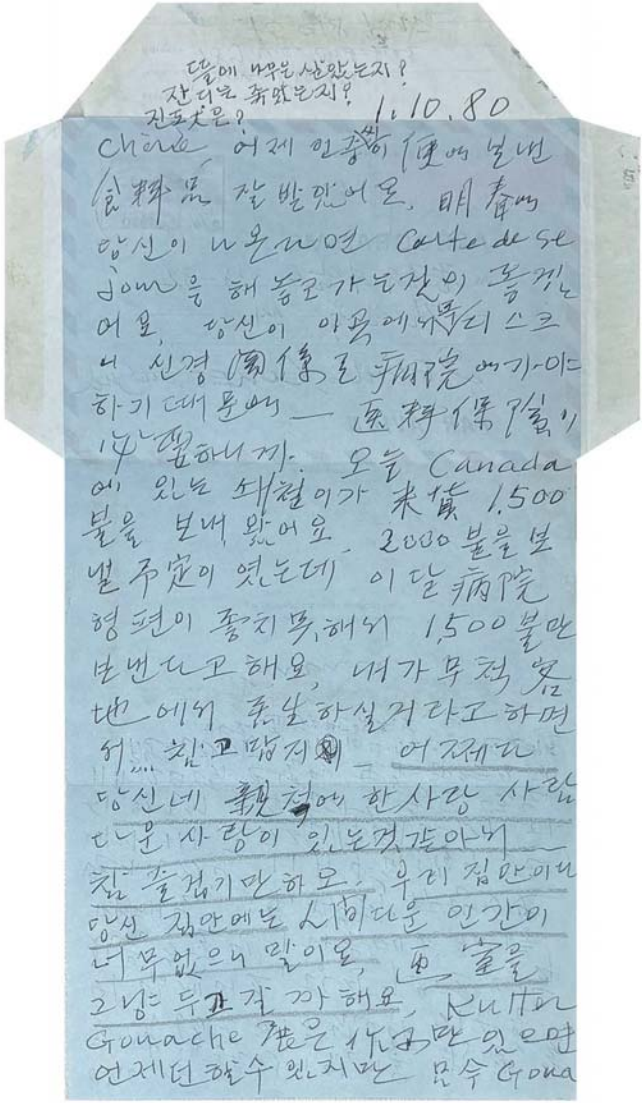 뜰에 나무는 살았는지?
잔디는 죽었는지?
진돗犬은?
1.10.80
Chérie, 어제 인중이 便에 보낸
食料品 잘 받았어요. 明春에
당신이 나온다면 Carte de se
jour을 해 놓고 가는것이 좋겠
어요. 당신이 디스크
니 신경 関係로 病院에 가야
하기 때문에 — 医料保險이
必要하니까. 오늘 Canada
에 있는 이가 米貨 1,500
불을 보내 왔어요. 2000불을 보
낼 予定이 였는데 이달 病院
형편이 좋치 못해서 1,500불만
보낸다고 해요. 내가 무척 客
地에서 苦生하실거라고 하면
서... 참 고맙지 — 어쩌다
당신네 親척에 한사람 사람
다운 사람이 있는것같아서 —
참 즐겁기만 하오. 우리 집안이나
당신 집안에는 人間다운 인간이
너무 없으니 말이요. 画室을
그냥 두고 갈까 해요.
Gouache 展은 作品만 있으면
언제던 할수 있지만 Goua